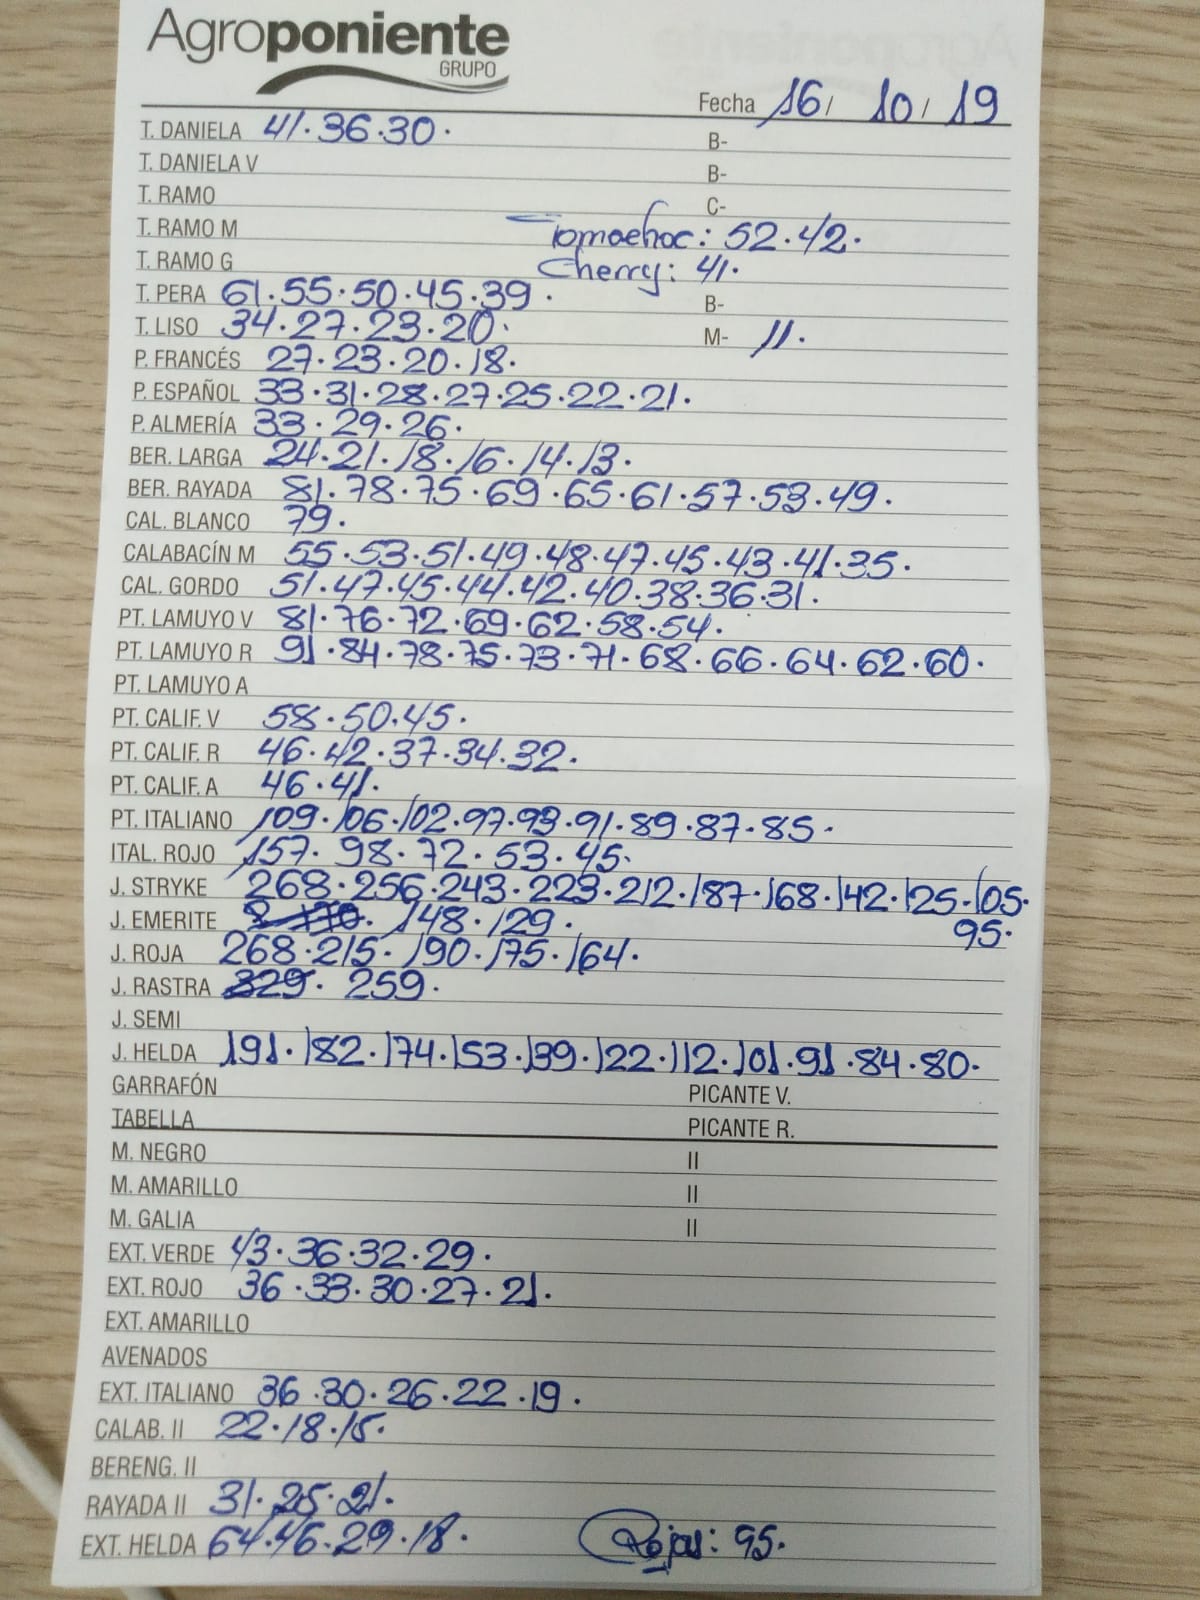 Agroponiente
GRUPO
Fecha 16/ 10/ 19
T. DANIELA 41.36.30. B-
T. DANIELA V B-
T. RAMO C-
T. RAMO M Tomaehoc: 52.42.
T. RAMO G Cherry: 41.
T. PERA 61.55.50.45.39. B-
T. LISO 34.27.23.20. M- 11.
P. FRANCÉS 27.23.20.18.
P. ESPAÑOL 33.31.28.27.25.22.21.
P. ALMERÍA 33.29.26.
BER. LARGA 24.21.18.16.14.13.
BER. RAYADA 81.78.75.69.65.61.57.53.49.
CAL. BLANCO 79.
CALABACÍN M 55.53.51.49.48.47.45.43.41.35.
CAL. GORDO 51.47.45.44.42.40.38.36.31.
PT. LAMUYO V 81.76.72.69.62.58.54.
PT. LAMUYO R 91.84.78.75.73.71.68.66.64.62.60.
PT. LAMUYO A
PT. CALIF. V 58.50.45.
PT. CALIF. R 46.42.37.34.32.
PT. CALIF. A 46.41.
PT. ITALIANO 109.106.102.97.93.91.89.87.85.
ITAL. ROJO 157.98.72.53.45.
J. STRYKE 268.256.243.223.212.187.168.142.125.105.
J. EMERITE 148.129. 95.
J. ROJA 268.215.190.175.164.
J. RASTRA 329. 259.
J. SEMI
J. HELDA 191.182.174.153.139.122.112.101.91.84.80.
GARRAFÓN PICANTE V.
TABELLA PICANTE R.
M. NEGRO II
M. AMARILLO II
M. GALIA II
EXT. VERDE 43.36.32.29.
EXT. ROJO 36.33.30.27.21.
EXT. AMARILLO
AVENADOS
EXT. ITALIANO 36.30.26.22.19.
CALAB. II 22.18.15.
BERENG. II
RAYADA II 31.25.21.
EXT. HELDA 64.46.29.18. Rojas: 95.